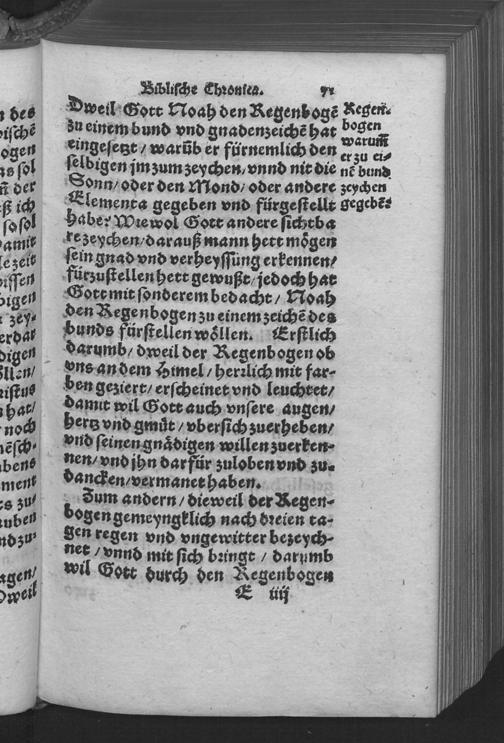 Biblische Chronica. 71
Dweil Gott Noah den Regenbogẽ
zu einem bund vnd gnadenzeichẽ hat
eingesetzt / warũb er fürnemlich den
selbigen jm zum zeychen / vnnd nit die
Sonn / oder den Mond / oder andere
Elementa gegeben vnd fürgestellt
habe? Wiewol Gott andere sichtba
re zeychen / darauß mann hett mögen
sein gnad vnd verheyssung erkennen /
fürzustellen hett gewußt / jedoch hat
Gott mit sonderem bedacht / Noah
den Regenbogen zu einem zeichẽ des
bunds fürstellen wöllen. Erstlich
darumb / dweil der Regenbogen ob
vns an dem Himel / herzlich mit far-
ben geziert / erscheinet vnd leuchtet /
damit wil Gott auch vnsere augen /
hertz vnd gmüt / vbersich zuerheben /
vnd seinen gnädigen willen zuerken-
nen / vnd jhn darfür zuloben vnd zu-
dancken / vermanet haben.
Zum andern / dieweil der Regen-
bogen gemeyngklich nach dreien ta-
gen regen vnd vngewitter bezeych-
net / vnnd mit sich bringt / darumb
wil Gott durch den Regenbogen
E iiij
Regen-
bogen
warum̃
er zu ei-
nẽ bund
zeychen
gegebẽ?